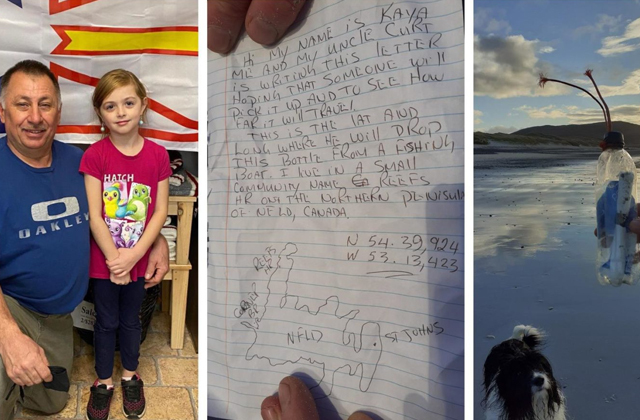 OAKLEY
HATCH
HI MY NAME IS KAYA
ME AND MY UNCLE CURT
IS WRITING THIS LETTER
HOPING THAT SOMEONE WILL
PICK IT UP AND TO SEE HOW
FAR IT WILL TRAVEL
THIS IS THE LAT AND
LONG WHERE HE WILL DROP
THIS BOTTLE FROM A FISHING
BOAT. I LIVE IN A SMALL
COMMUNITY NAME REEFS
HR ON THE NORTHERN PENINSULA
OF NFLD, CANADA
N 54. 39,924
W 53. 13,423
REEFS
HR
NFLD
ST JOHNS